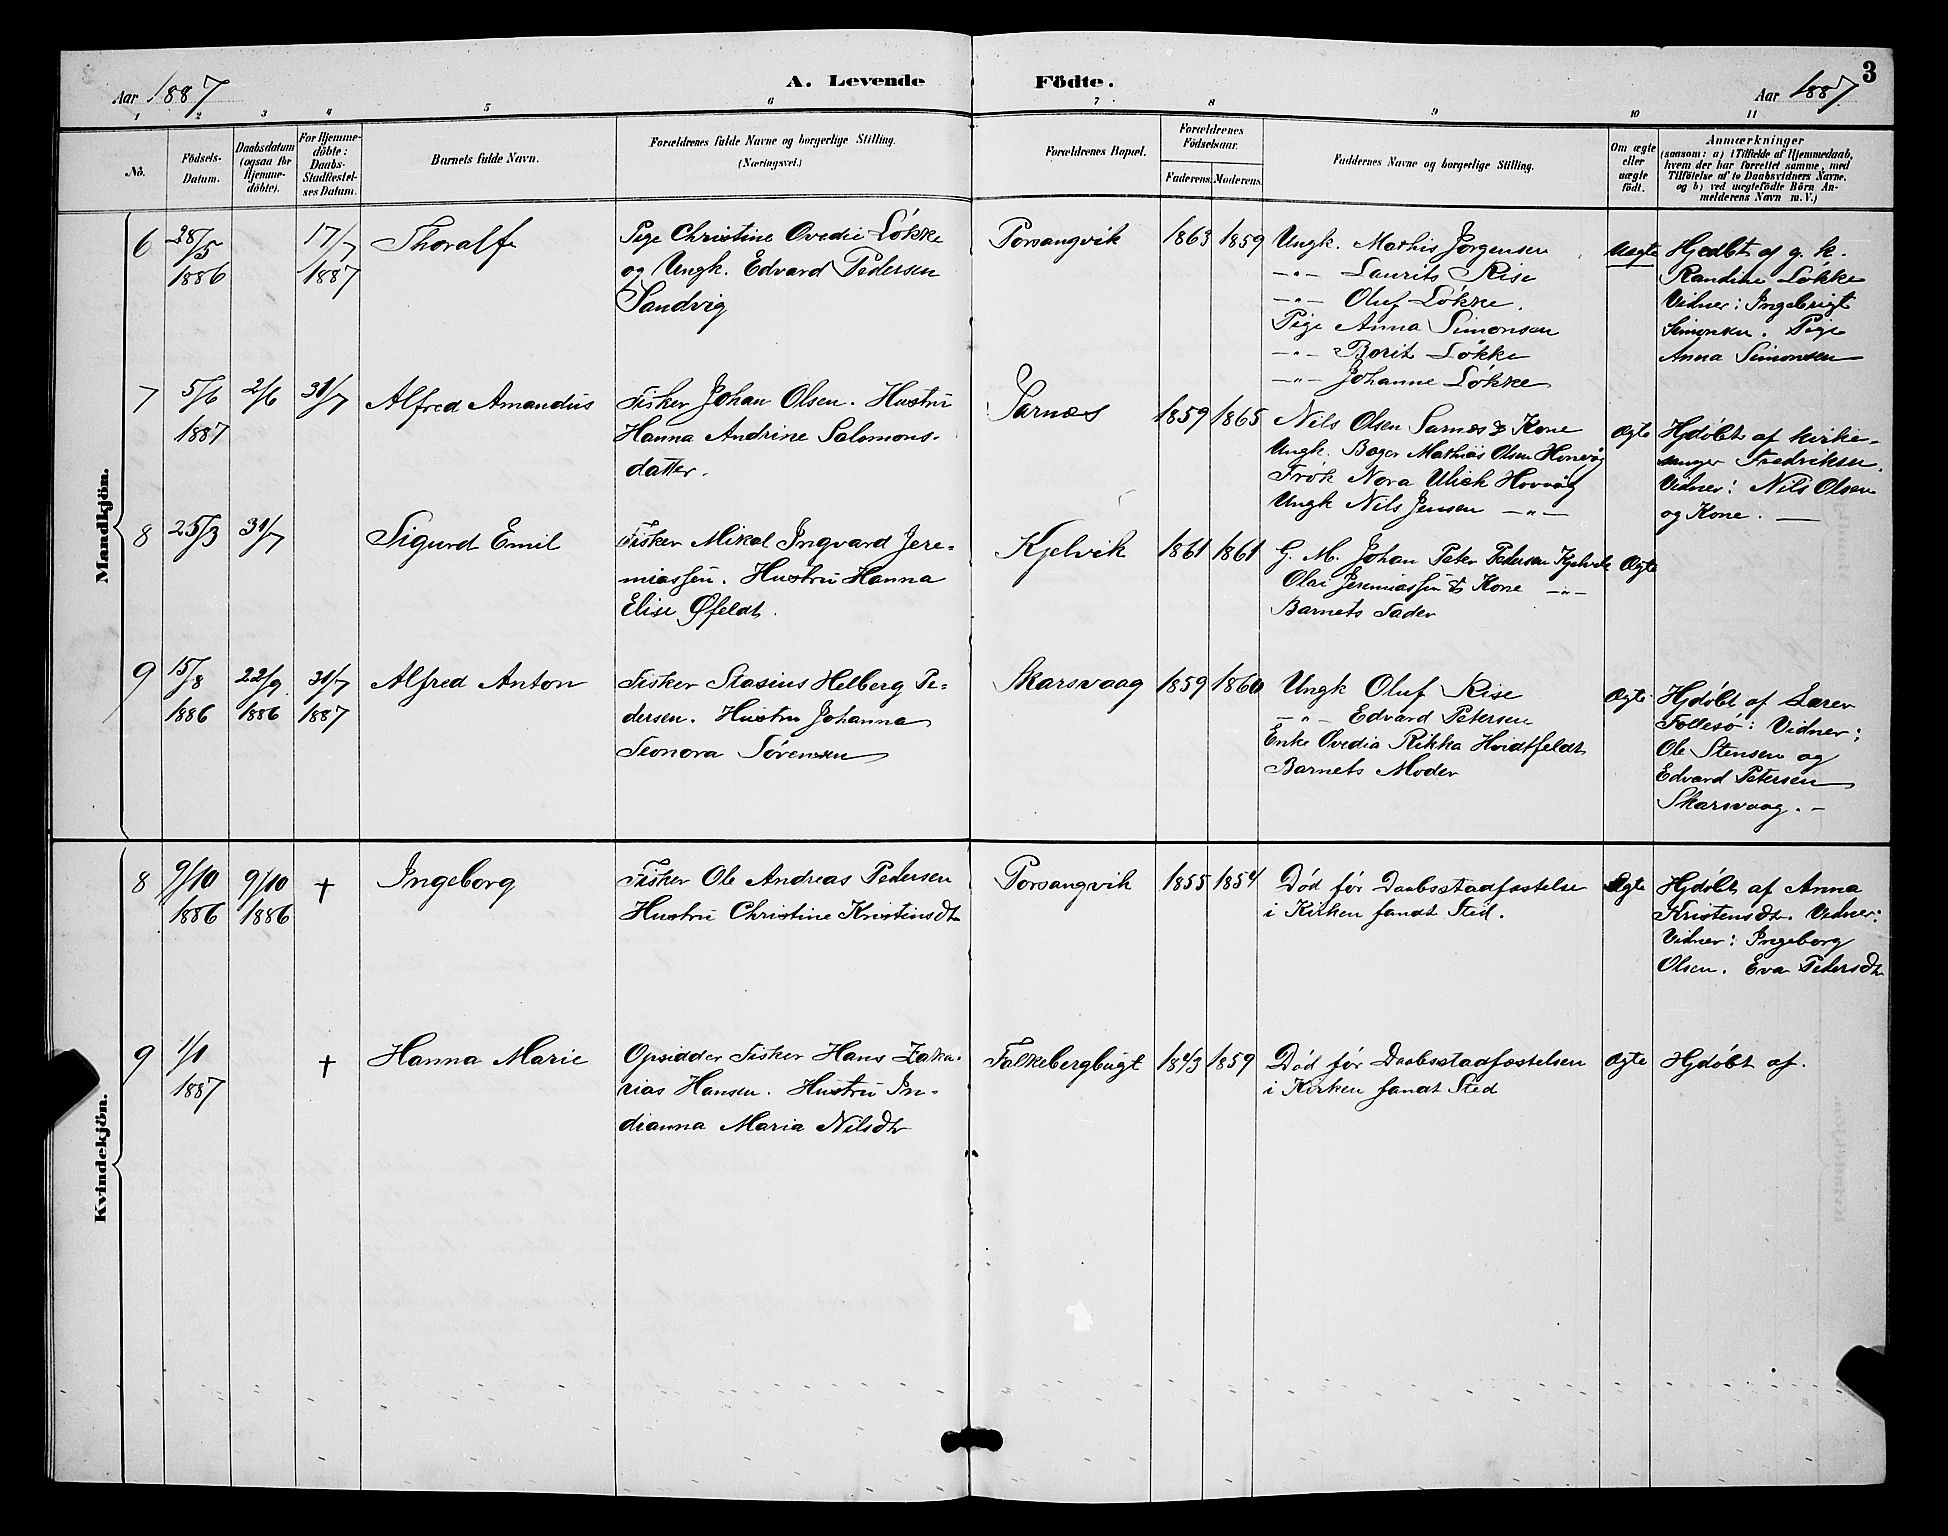 Aar 1887
A. Levende Födte.
Aar 1887
3
1 2 3 4 5 6 7 8 9 10 11
No.
Födsels-Datum.
Daabsdatum (ogsaa for Hjemme-döbte).
For Hjemme-döbte: Daabs-Stadfæstel-ses Datum.
Barnets fulde Navn.
Forældrenes fulde Navne og borgerlige Stilling. (Næringsvei.)
Forældrenes Bopæl.
Forældrenes Födselsaar.
Faderens. Moderens.
Faddernes Navne og borgerlige Stilling.
Om ægte eller uægte födt.
Anmærkninger
(saasom: a) i Tilfælde af Hjemmedaab,
hvem der har forrettet samme, med
Tilföielse af to Daabsvidners Navne,
og b) ved uægtefödte Börn An-
melderens Navn m. V.)
Mandkjön.
6
28/5
1886
17/7
1887
Thoralf
Pige Christine Ovedie Løkke
og Ungk. Edvard Pedersen
Sandvig
Porsangvik
1863
1859
Ungk. Mathis Jørgensen
-"- Laurits Rise
-"- Oluf Løkke.
Pige Anna Simonsen
-"- Borit Løkke
-"- Johanne Løkke
Uægte
Hjdøbt af g. k.
Randine Løkke
Vidner: Ingebrigt
Simonsen. Pige
Anna Simonsen
7
5/6
1887
2/6
31/7
Alfred Amandus
Fisker Johan Olsen. Hustru
Hanna Andrine Salomons-
datter.
Sarnæs
1859
1865
Nils Olsen Sarnæs & Kone
Ungk. Bager Mathias Olsen Honvåg
Frøk Nora Ulich Honvåg
Ungk Nils Jensen -"-
Ægte
Hjdøbt af kirke-
sanger Fredriksen.
Vidner: Nils Olsen
og Kone. —
8
25/3
31/7
Sigurd Emil
Fisker Mikal Ingvard Jere-
miassen. Hustru Hanna
Elise Øfeldt.
Kjelvik
1861
1861
G. M. Johan Peter Pedersen Kjelvik
Olai Jeremiassen & Kone -"-
Barnets Fader
Ægte
9
15/8
1886
22/9
1886
31/7
1887
Alfred Anton
Fisker Stasius Helberg Pe-
dersen. Hustru Johanna
Leonora Sørensen
Skarsvaag
1859
1860
Ungk Oluf Rise
-"- Edvard Petersen
Enke Ovedia Rikka Hvidtfeldt
Barnets Moder
Ægte
Hjdøbt af Lærer
Follesø: Vidner:
Ole Stensen og
Edvard Petersen
Skarsvaag. -
Kvindekjön.
8
9/10
1886
9/10
1886
†
Ingeborg
Fisker Ole Andreas Pedersen
Hustru Christine Kristinsdtr
Porsangvik
1855
1854
Død før Daabsstadfæstelse
i Kirken fandt Sted.
Ægte
Hjdøbt af Anna
Kristensdtr. Vidner:
Vidner: Ingeborg
Olsen. Eva Pedersdtr
9
1/1
1887
†
Hanna Marie
Opsidder Fisker Hans Zaka-
rias Hansen. Hustru In-
dianna Maria Nilsdtr
Falkebergbugt
1843
1859
Død før Daabsstadfæstelsen
i Kirken fandt Sted
Ægte
Hjdøbt af.